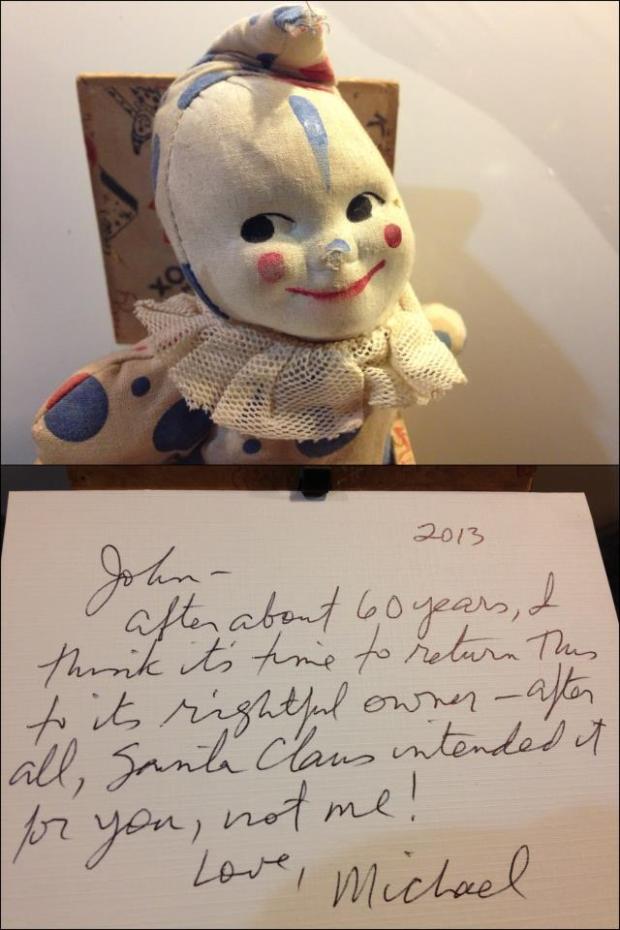 XO
2013
John-
after about 60 years, I
think it's time to return this
to its rightful owner – after
all, Santa Claus intended it
for you, not me!
Love,
Michael